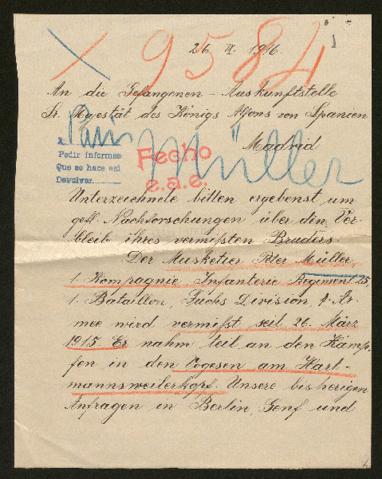 26. III. 1916.
9584
An die Gefangenen-Auskunftstelle
Sr. Majestät des Königs Alfons von Spanien
Madrid
Paris
Müller
Pedir informes
Que se hace así
Devolver
Fecho
e.a.e.
Unterzeichnete bitten ergebenst um
gefl. Nachforschungen über den Ver-
bleib ihres vermißten Bruders
Der Musketier Peter Müller
1. Kompagnie Infanterie Regiment 25,
1. Bataillon, Fuchs Division, Ar-
mee wird vermißt seit 26. März
1915 Er nahm teil an den Kämp-
fen in den Vogesen am Hart-
mannsweilerkopf. Unsere bisherigen
Anfragen in Berlin, Genf und